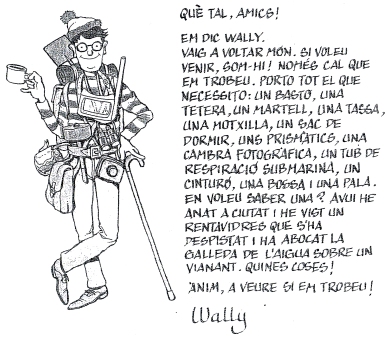 QUÈ TAL, AMICS!
EM DIC WALLY.
VAIG A VOLTAR MÓN. SI VOLEU
VENIR, SOM-HI! NOMÉS CAL QUE
EM TROBEU. PORTO TOT EL QUE
NECESSITO: UN BASTÓ, UNA
TETERA, UN MARTELL, UNA TASSA,
UNA MOTXILLA, UN SAC DE
DORMIR, UNS PRISMÀTICS, UNA
CAMBRA FOTOGRÀFICA, UN TUB DE
RESPIRACIÓ SUBMARINA, UN
CINTURÓ, UNA BOSSA I UNA PALA.
EN VOLEU SABER UNA? AVUI HE
ANAT A CIUTAT I HE VIST UN
RENTAVIDRES QUE S'HA
DESPISTAT I HA ABOCAT LA
GALLEDA DE L'AIGUA SOBRE UN
VIANANT. QUINES COSES!
ÀNIM, A VEURE SI EM TROBEU!
Wally